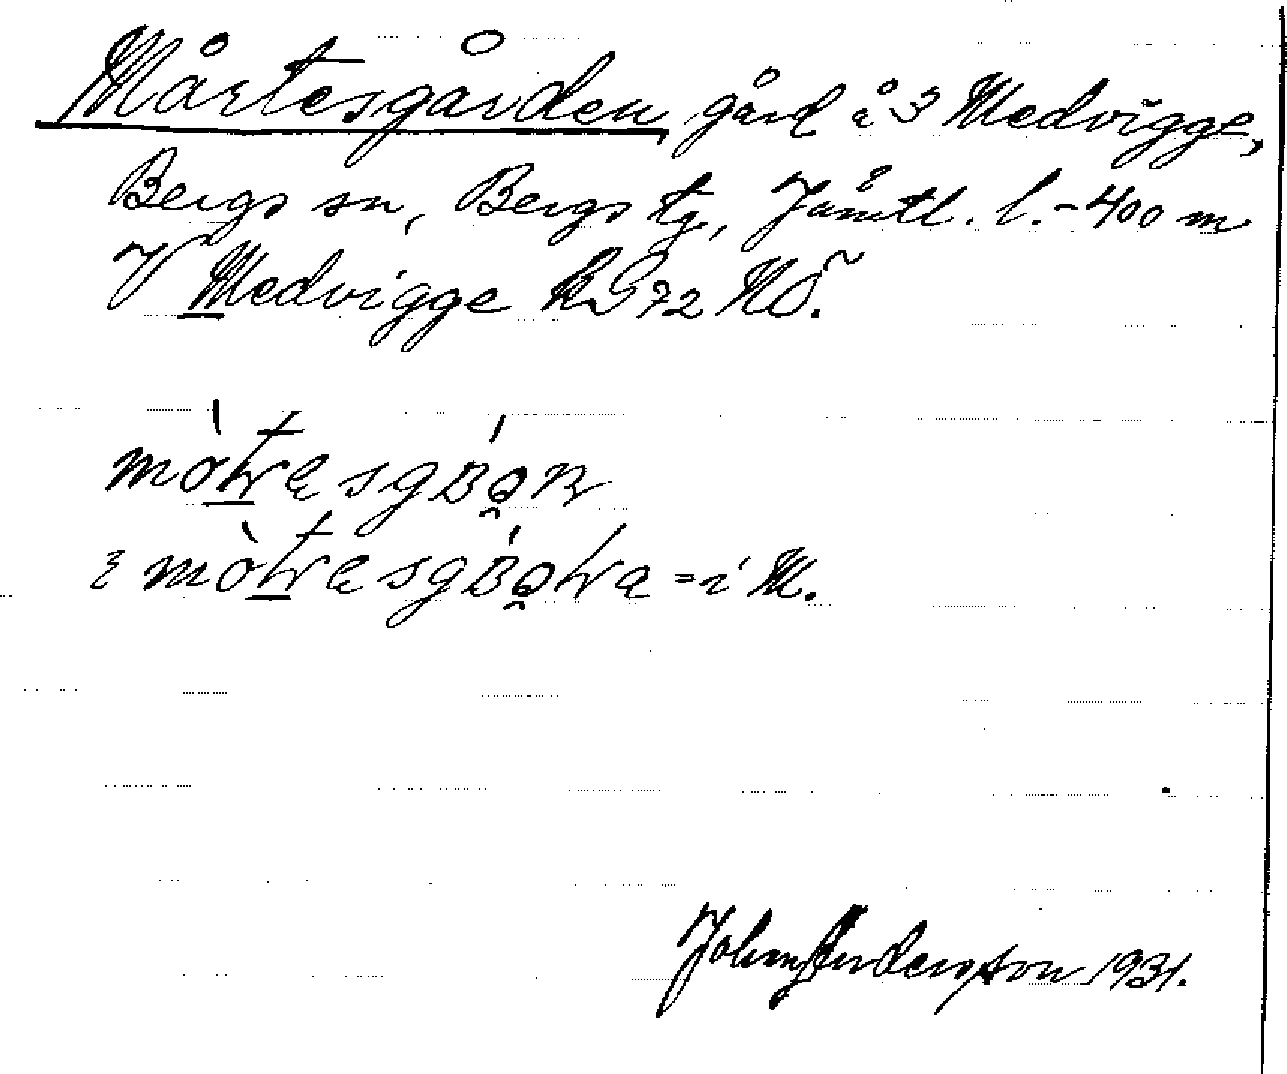 Mårtesgården, gård å 3 Medvigge,
Bergs sn, Bergs tg, Jämtl. l. - 400 m
V Medvigge kS 72 NÖ.
mòtresgɒ́n
i mòtresgɒ́tra = i M.
John Anderson 1931.